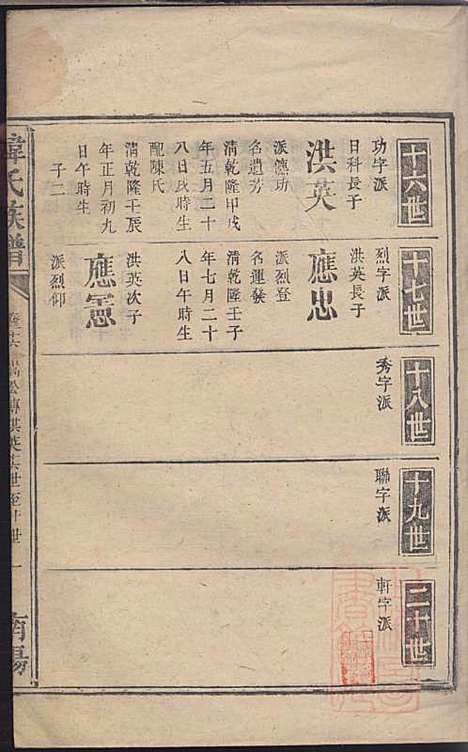 十六世
功字派
日科長子
洪英
派德功
名遺芳
清乾隆甲戌
年五月二十
八日戌時生
配陳氏
清乾隆壬辰
年正月初九
日午時生
子二
十七世
烈字派
洪英長子
應忠
派烈登
名運發
清乾隆壬子
年七月二十
八日午時生
洪英次子
應憲
派烈仰
十八世
秀字派
十九世
聯字派
二十世
軒字派
韋氏族譜